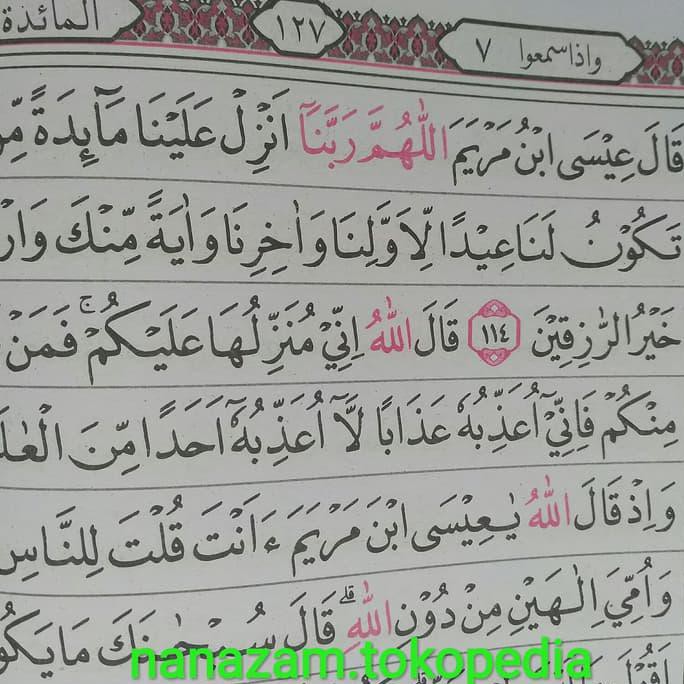 واذاسمعوا ٧ ١٢٧ المائدة
قَالَ عِيْسَى ابْنُ مَرْيَمَ اللّٰهُمَّ رَبَّنَآ اَنْزِلْ عَلَيْنَا مَآىِٕدَةً
تَكُوْنُ لَنَا عِيْدًا لِّاَوَّلِنَا وَاٰخِرِنَا وَاٰيَةً مِّنْكَ
خَيْرُ الرّٰزِقِيْنَ ١١٤ قَالَ اللّٰهُ اِنِّيْ مُنَزِّلُهَا عَلَيْكُمْ ۚ فَمَنْ
مِنْكُمْ فَاِنِّيْٓ اُعَذِّبُهٗ عَذَابًا لَّآ اُعَذِّبُهٗٓ اَحَدًا مِّنَ
وَاِذْ قَالَ اللّٰهُ يٰعِيْسَى ابْنَ مَرْيَمَ ءَاَنْتَ قُلْتَ لِلنَّاسِ
وَاُمِّيَ اِلٰهَيْنِ مِنْ دُوْنِ اللّٰهِ ۗ قَالَ سُبْحٰنَكَ مَا
nanazam.tokopedia